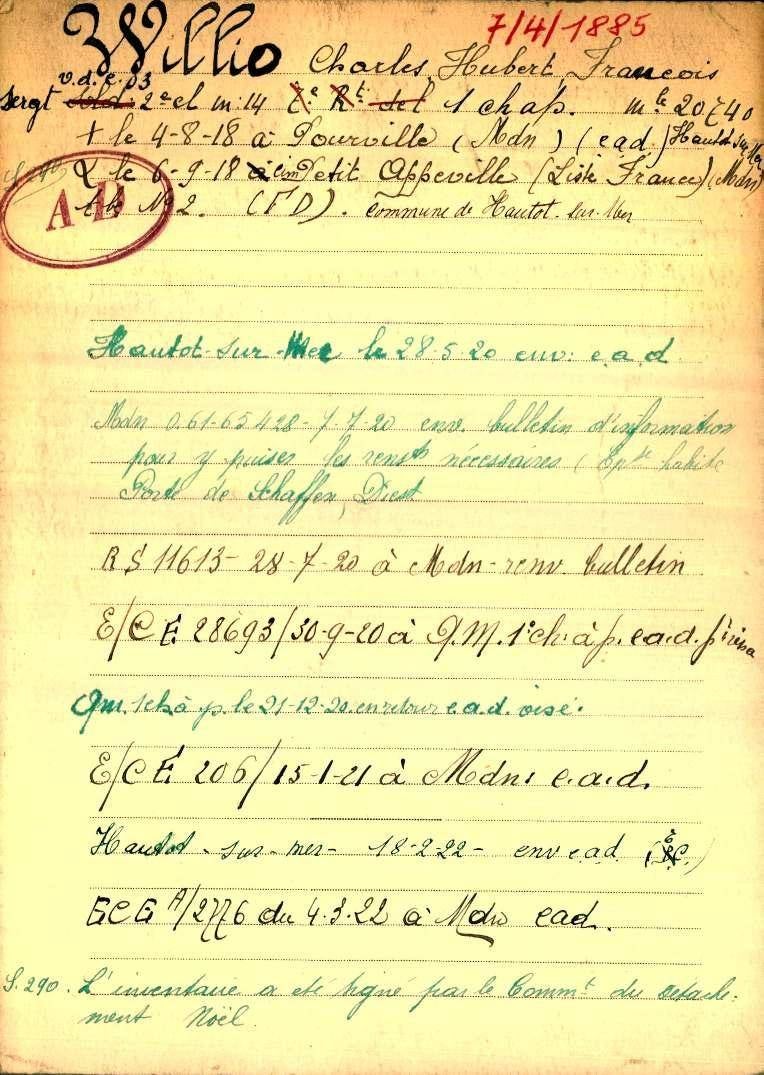 7/4/1885
Willio Charles, Hubert, Francois
v.d.e. 03
Sergt 2e el m: 14 7e Rt. del 1 chap. mle 20740
+ le 4-8-18 à Pourville (Mdn) (ead) Hautot sur Mer
le 6-9-18 à cim Petit Appeville (Liste France) (Mdn)
A D
tbe No 2. (FD). commune de Hautot-sur-Mer
Hautot-sur-Mer le 28-5-20 env: e.a.d
Mdn 0.61-65428-7-7-20 env. bulletin d'information
pour y puiser les rensts nécessaires habite
Porte de Schaffen, Diest
RS 11613- 28-7-20 à Mdn-renv. bulletin
E/CE 28693/30-9-20 à Q.M. 1e ch. à p. e.a.d. pr visa
Qm. 1chà p. le 21-12-20. en retour e.a.d. visé.
E/CE 206/15-1-21 à Mdn: e.a.d.
Hautot-sur-mer- 18-2-22- env ead
ECE A/2776 du 4.3.22 à Mdn ead.
S.290. L'inventaire a été signé par le Commt du détache-
ment Noël.